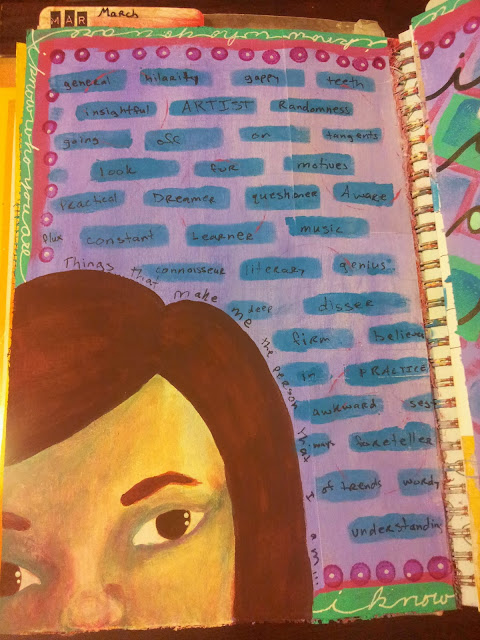 MAR March
i know who you are
i know who you are
general hilarity gappy teeth
insightful ARTIST Randomness
going off on tangents
look for motives
Practical DREAMER questioner Aware
plus constant Learner music
connoisseur literary genius
deep disser
firm believer
in PRACTICE
awkward
foreteller
of trends wordy
understanding
Things that make me the person that I am...
i know